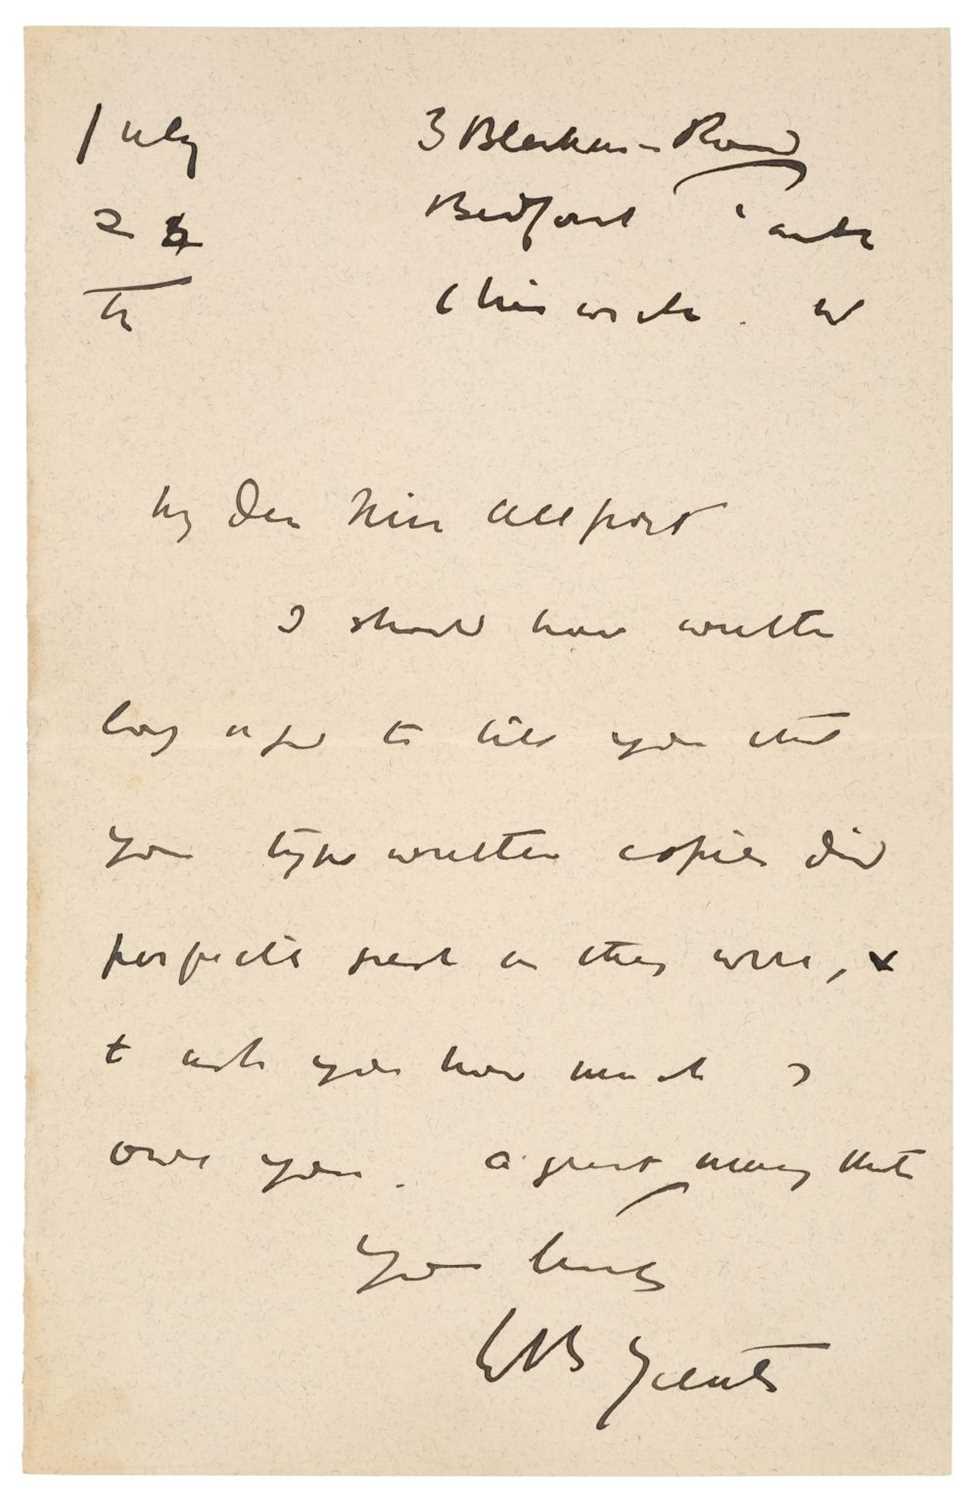 July 3 Blenheim Road
Bedford Park
Chiswick. W
My dear Miss Allport
I should have written
long ago to tell you that
your type written copies did
perfectly just as they were, &
to ask you how much I
owe you. A great many thanks
Yours truly
WB Yeats